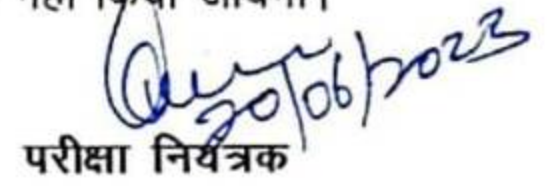 20/06/2023
परीक्षा नियंत्रक